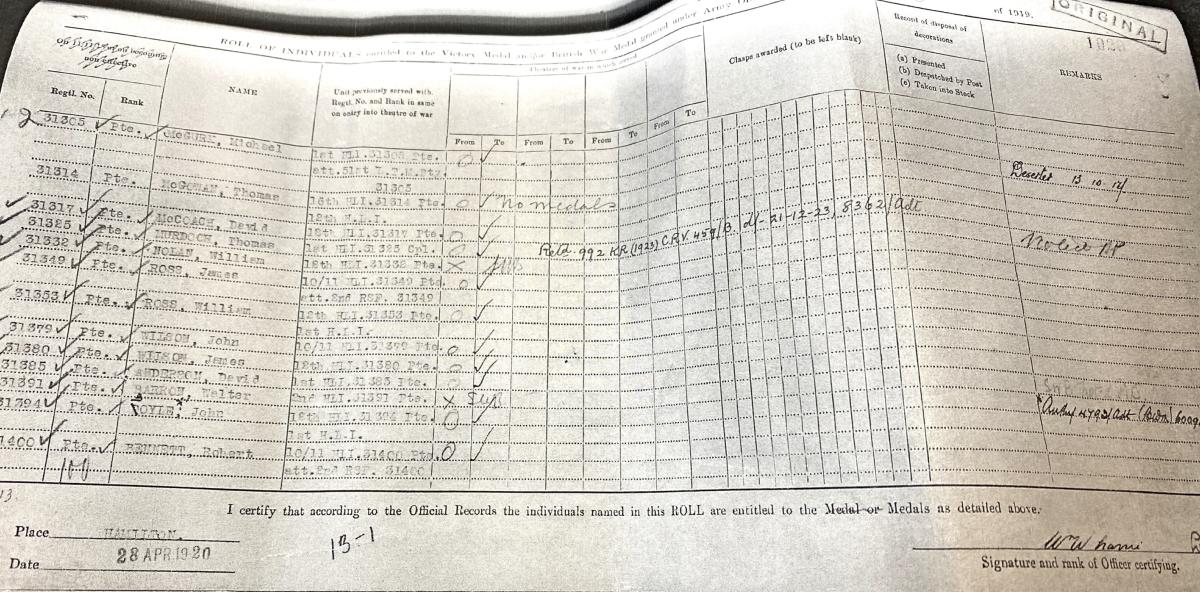 of 1919.
ORIGINAL
ROLL OF INDIVIDUALS entitled to the Victory Medal and/or British War Medal granted under Army
Theatre of war in which served
Regtl. No. Rank NAME Unit previously served with. Regtl. No. and Rank in same on entry into theatre of war From To From To From To From To Clasps awarded (to be left blank) Record of disposal of decorations (a) Presented (b) Despatched by Post (c) Taken into Stock REMARKS
31305 Pte. McGURK, Michael 1st HLI.31305 Pte.
att.51st L.T.M.Bty. 31305 Deserter 13 10 17
31314 Pte. McGOWAN, Thomas 16th HLI.31314 Pte. O No medals
31317 Pte. McCOACH, David 12th H.L.I.
18th HLI.31317 Pte. O
31325 Pte. MURDOCH, Thomas 1st HLI.31325 Cpl. O Retd. 992 KR (1923) C.R.V. 459/B. dt- 21-12-23, 8362/Adt
31332 Pte. NOLAN, William 18th HLI.31332 Pte. X
31349 Pte. ROSS, James 10/11 HLI.31349 Pte. O
att.2nd RSF. 31349
31353 Pte. ROSS, William 12th HLI.31353 Pte. O
1st H.L.I.
31379 Pte. WILSON, John 10/11 HLI.31379 Pte. O
31380 Pte. WILSON, James 18th HLI.31380 Pte. O
31385 Pte. ANDERSON, David 1st HLI.31385 Pte. O
31391 Pte. BARRON, Walter 2nd HLI.31391 Pte. X
31394 Pte. OYLE, John 18th HLI.31394 Pte. O
1st H.L.I.
1400 Pte. BENNETT, Robert 10/11 HLI.31400 Pte. O
att.2nd RSF. 31400
I certify that according to the Official Records the individuals named in this ROLL are entitled to the Medal or Medals as detailed above.
Place HAMILTON.
13-1
Date 28 APR 1920
Signature and rank of Officer certifying.